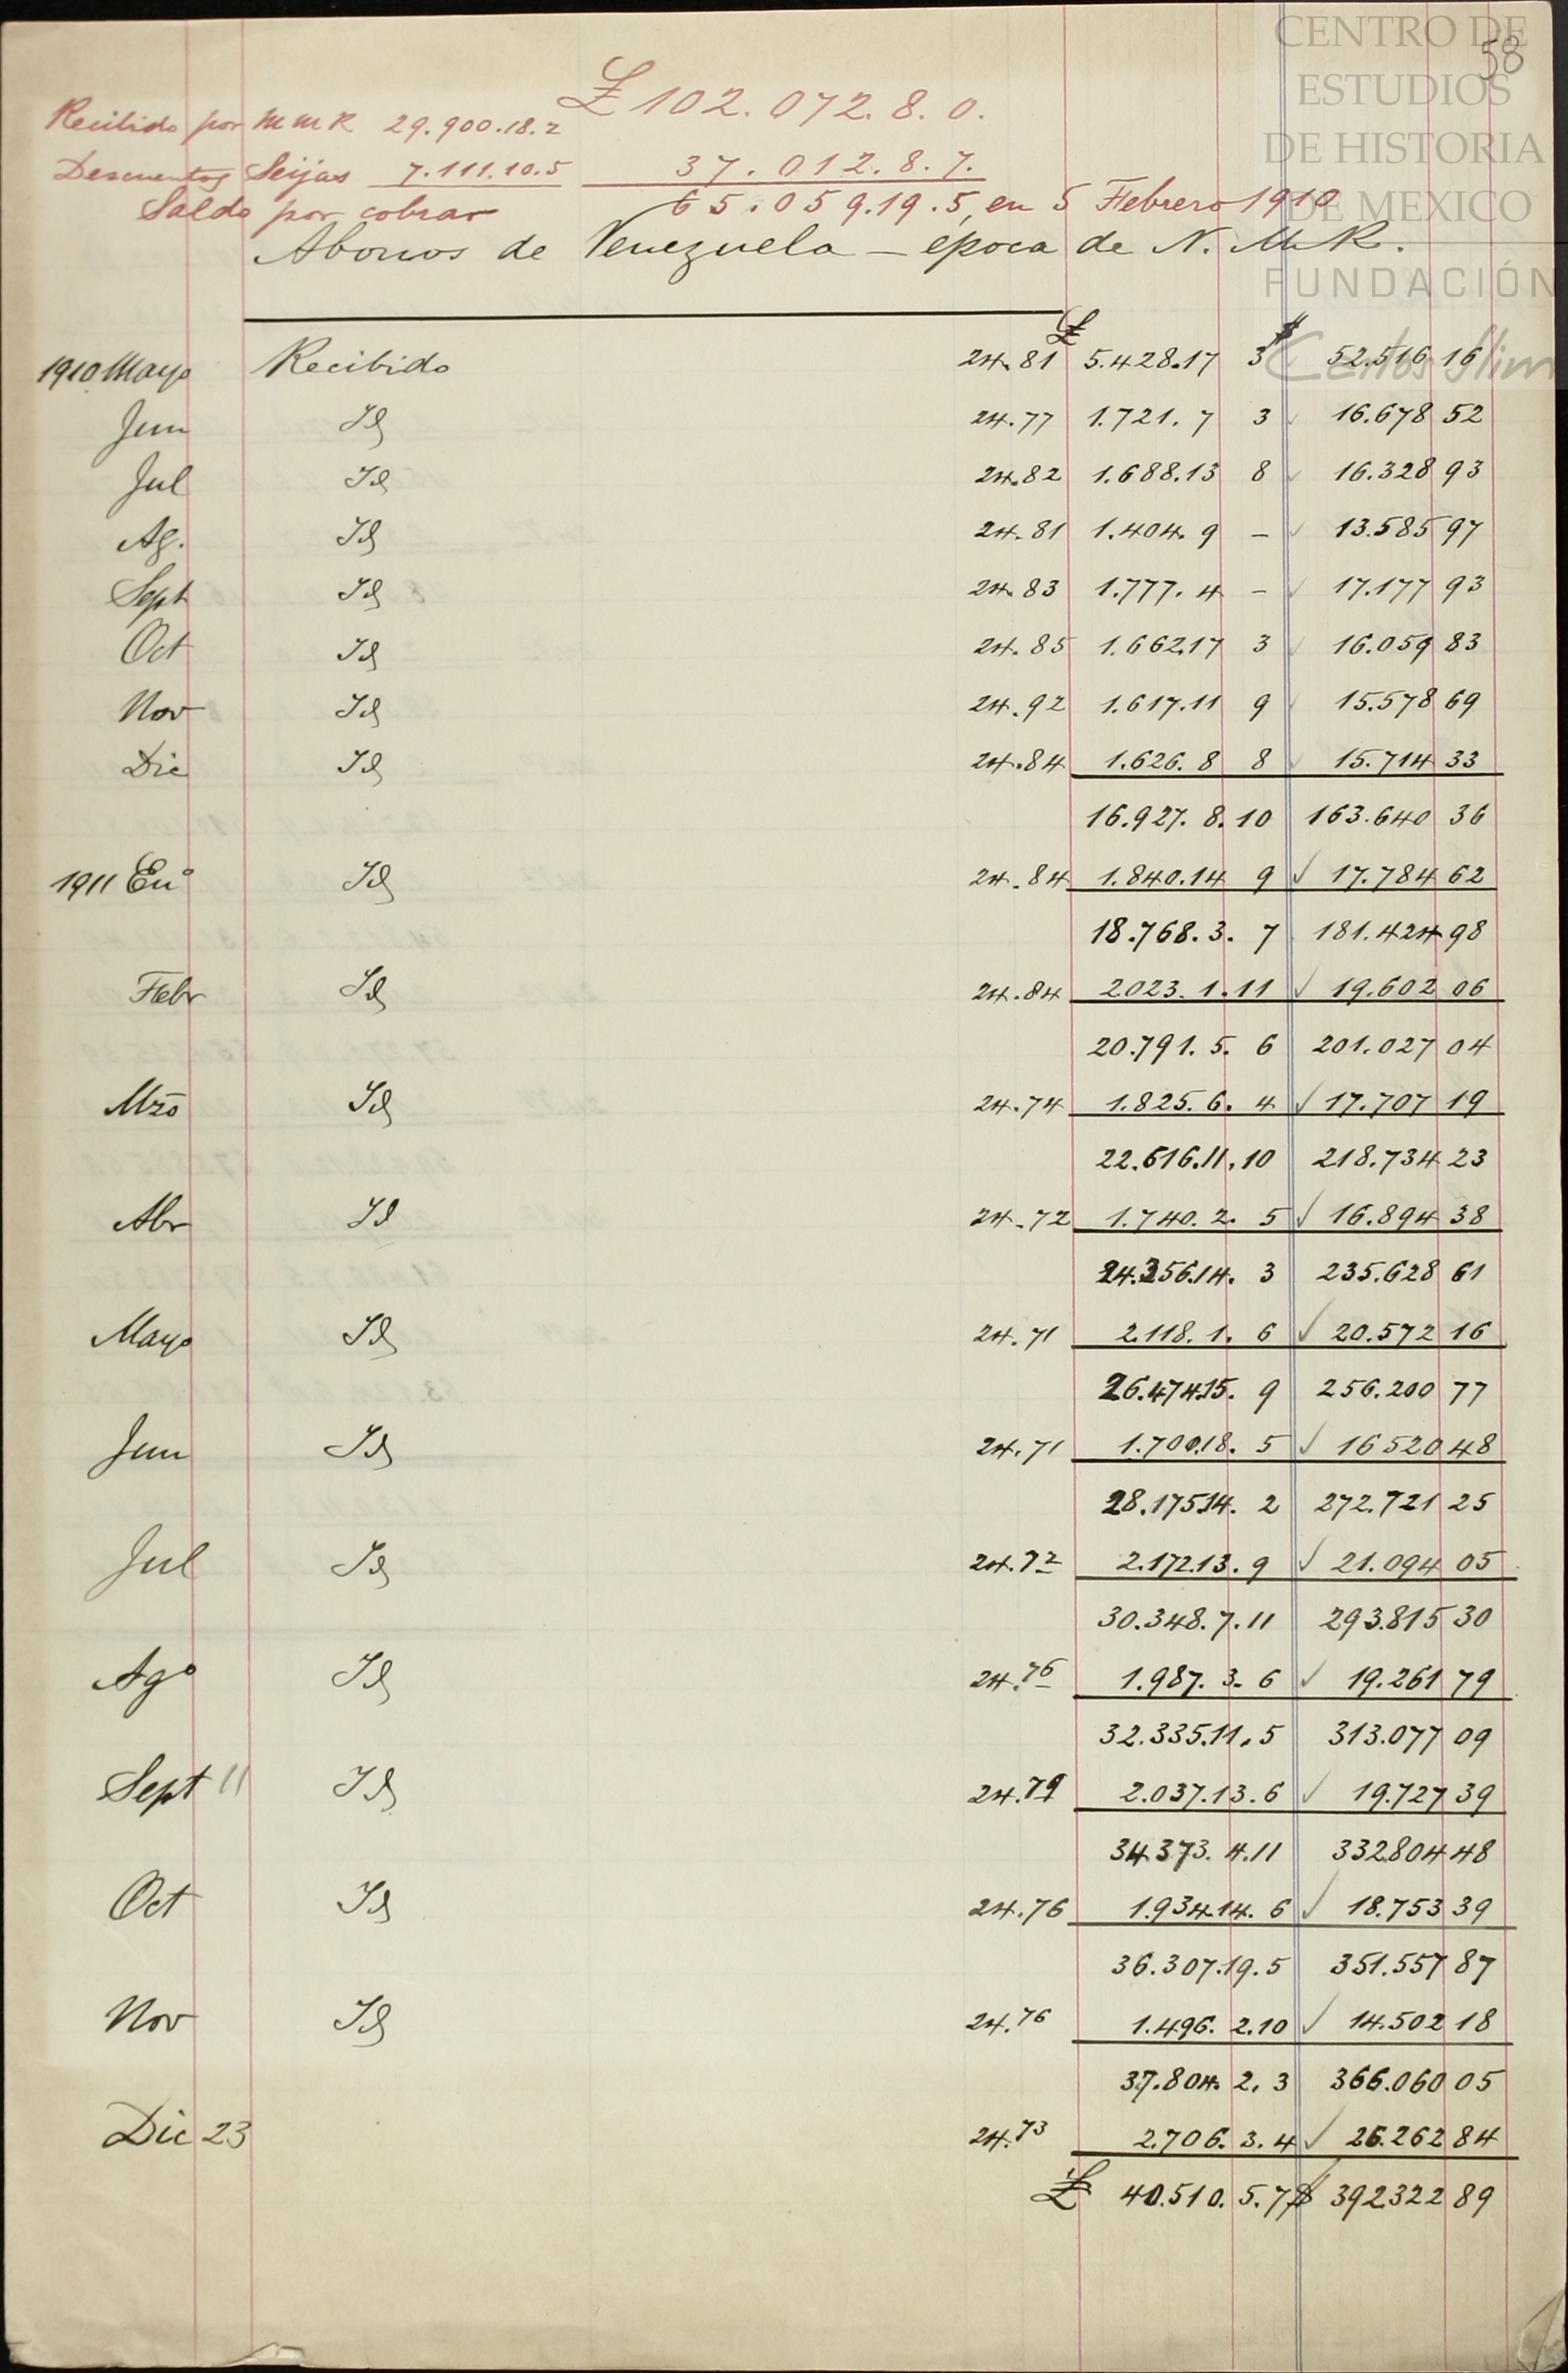 CENTRO DE
58
ESTUDIOS
DE HISTORIA
DE MEXICO
FUNDACIÓN
Carlos Slim
£ 102.072.8.0.
Recibido por M M R 29.900.18.2
Descuentos Seijas 7.111.10.5 37.012.8.7.
Saldo por cobrar 65.059.19.5, en 5 Febrero 1910
Abonos de Venezuela — época de N. M R.
£ $
1910 Mayo Recibido 24.81 5.428.17 3 52.516 16
Jun Id 24.77 1.721.7 3 16.678 52
Jul Id 24.82 1.688.13 8 16.328 93
Ag. Id 24.81 1.404.9 – 13.585 97
Sept Id 24.83 1.777.4 – 17.177 93
Oct Id 24.85 1.662.17 3 16.059 83
Nov Id 24.92 1.617.11 9 15.578 69
Dic Id 24.84 1.626.8 8 15.714 33
16.927.8.10 163.640 36
1911 Enº Id 24.84 1.840.14 9 ✓ 17.784 62
18.768.3.7 181.424 98
Febr Id 24.84 2023.1.11 ✓ 19.602 06
20.791.5.6 201.027 04
Mzo Id 24.74 1.825.6.4 ✓ 17.707 19
22.616.11.10 218.734 23
Abr Id 24.72 1.740.2.5 ✓ 16.894 38
24.356.14.3 235.628 61
Mayo Id 24.71 2.118.1.6 ✓ 20.572 16
26.474.15.9 256.200 77
Jun Id 24.71 1.700.18.5 ✓ 16520 48
28.175.14.2 272.721 25
Jul Id 24.72 2.172.13.9 ✓ 21.094 05
30.348.7.11 293.815 30
Agº Id 24.76 1.987.3.6 ✓ 19.261 79
32.335.11.5 313.077 09
Sept 11 Id 24.79 2.037.13.6 ✓ 19.727 39
34.373.4.11 332.804 48
Oct Id 24.76 1.934.14.6 ✓ 18.753 39
36.307.19.5 351.557 87
Nov Id 24.76 1.496.2.10 ✓ 14.502 18
37.804.2.3 366.060 05
Dic 23 24.73 2.706.3.4 ✓ 26.262 84
£ 40.510.5.7 $ 392.322 89